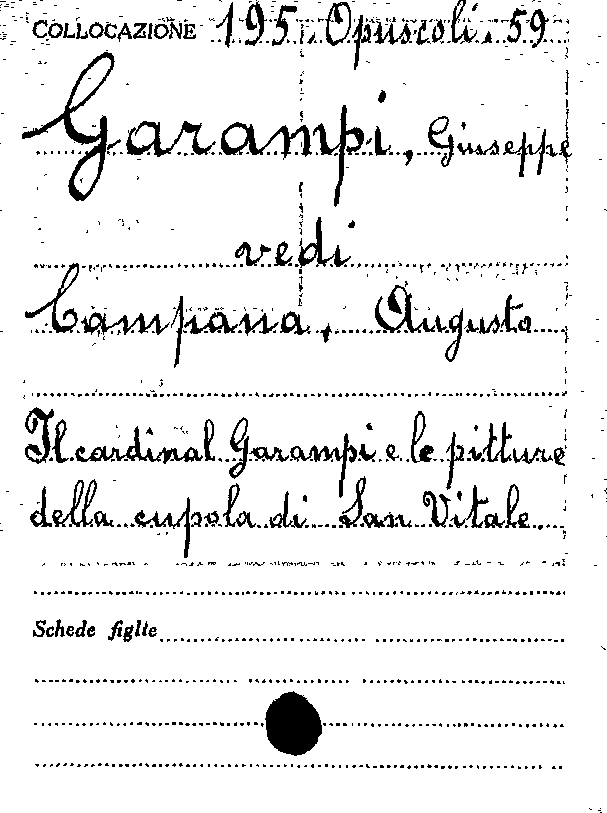 COLLOCAZIONE 195. Opuscoli. 59
Garampi, Giuseppe
vedi
Campana, Augusto
Il cardinal Garampi e le pitture
della cupola di San Vitale.
Schede figlte